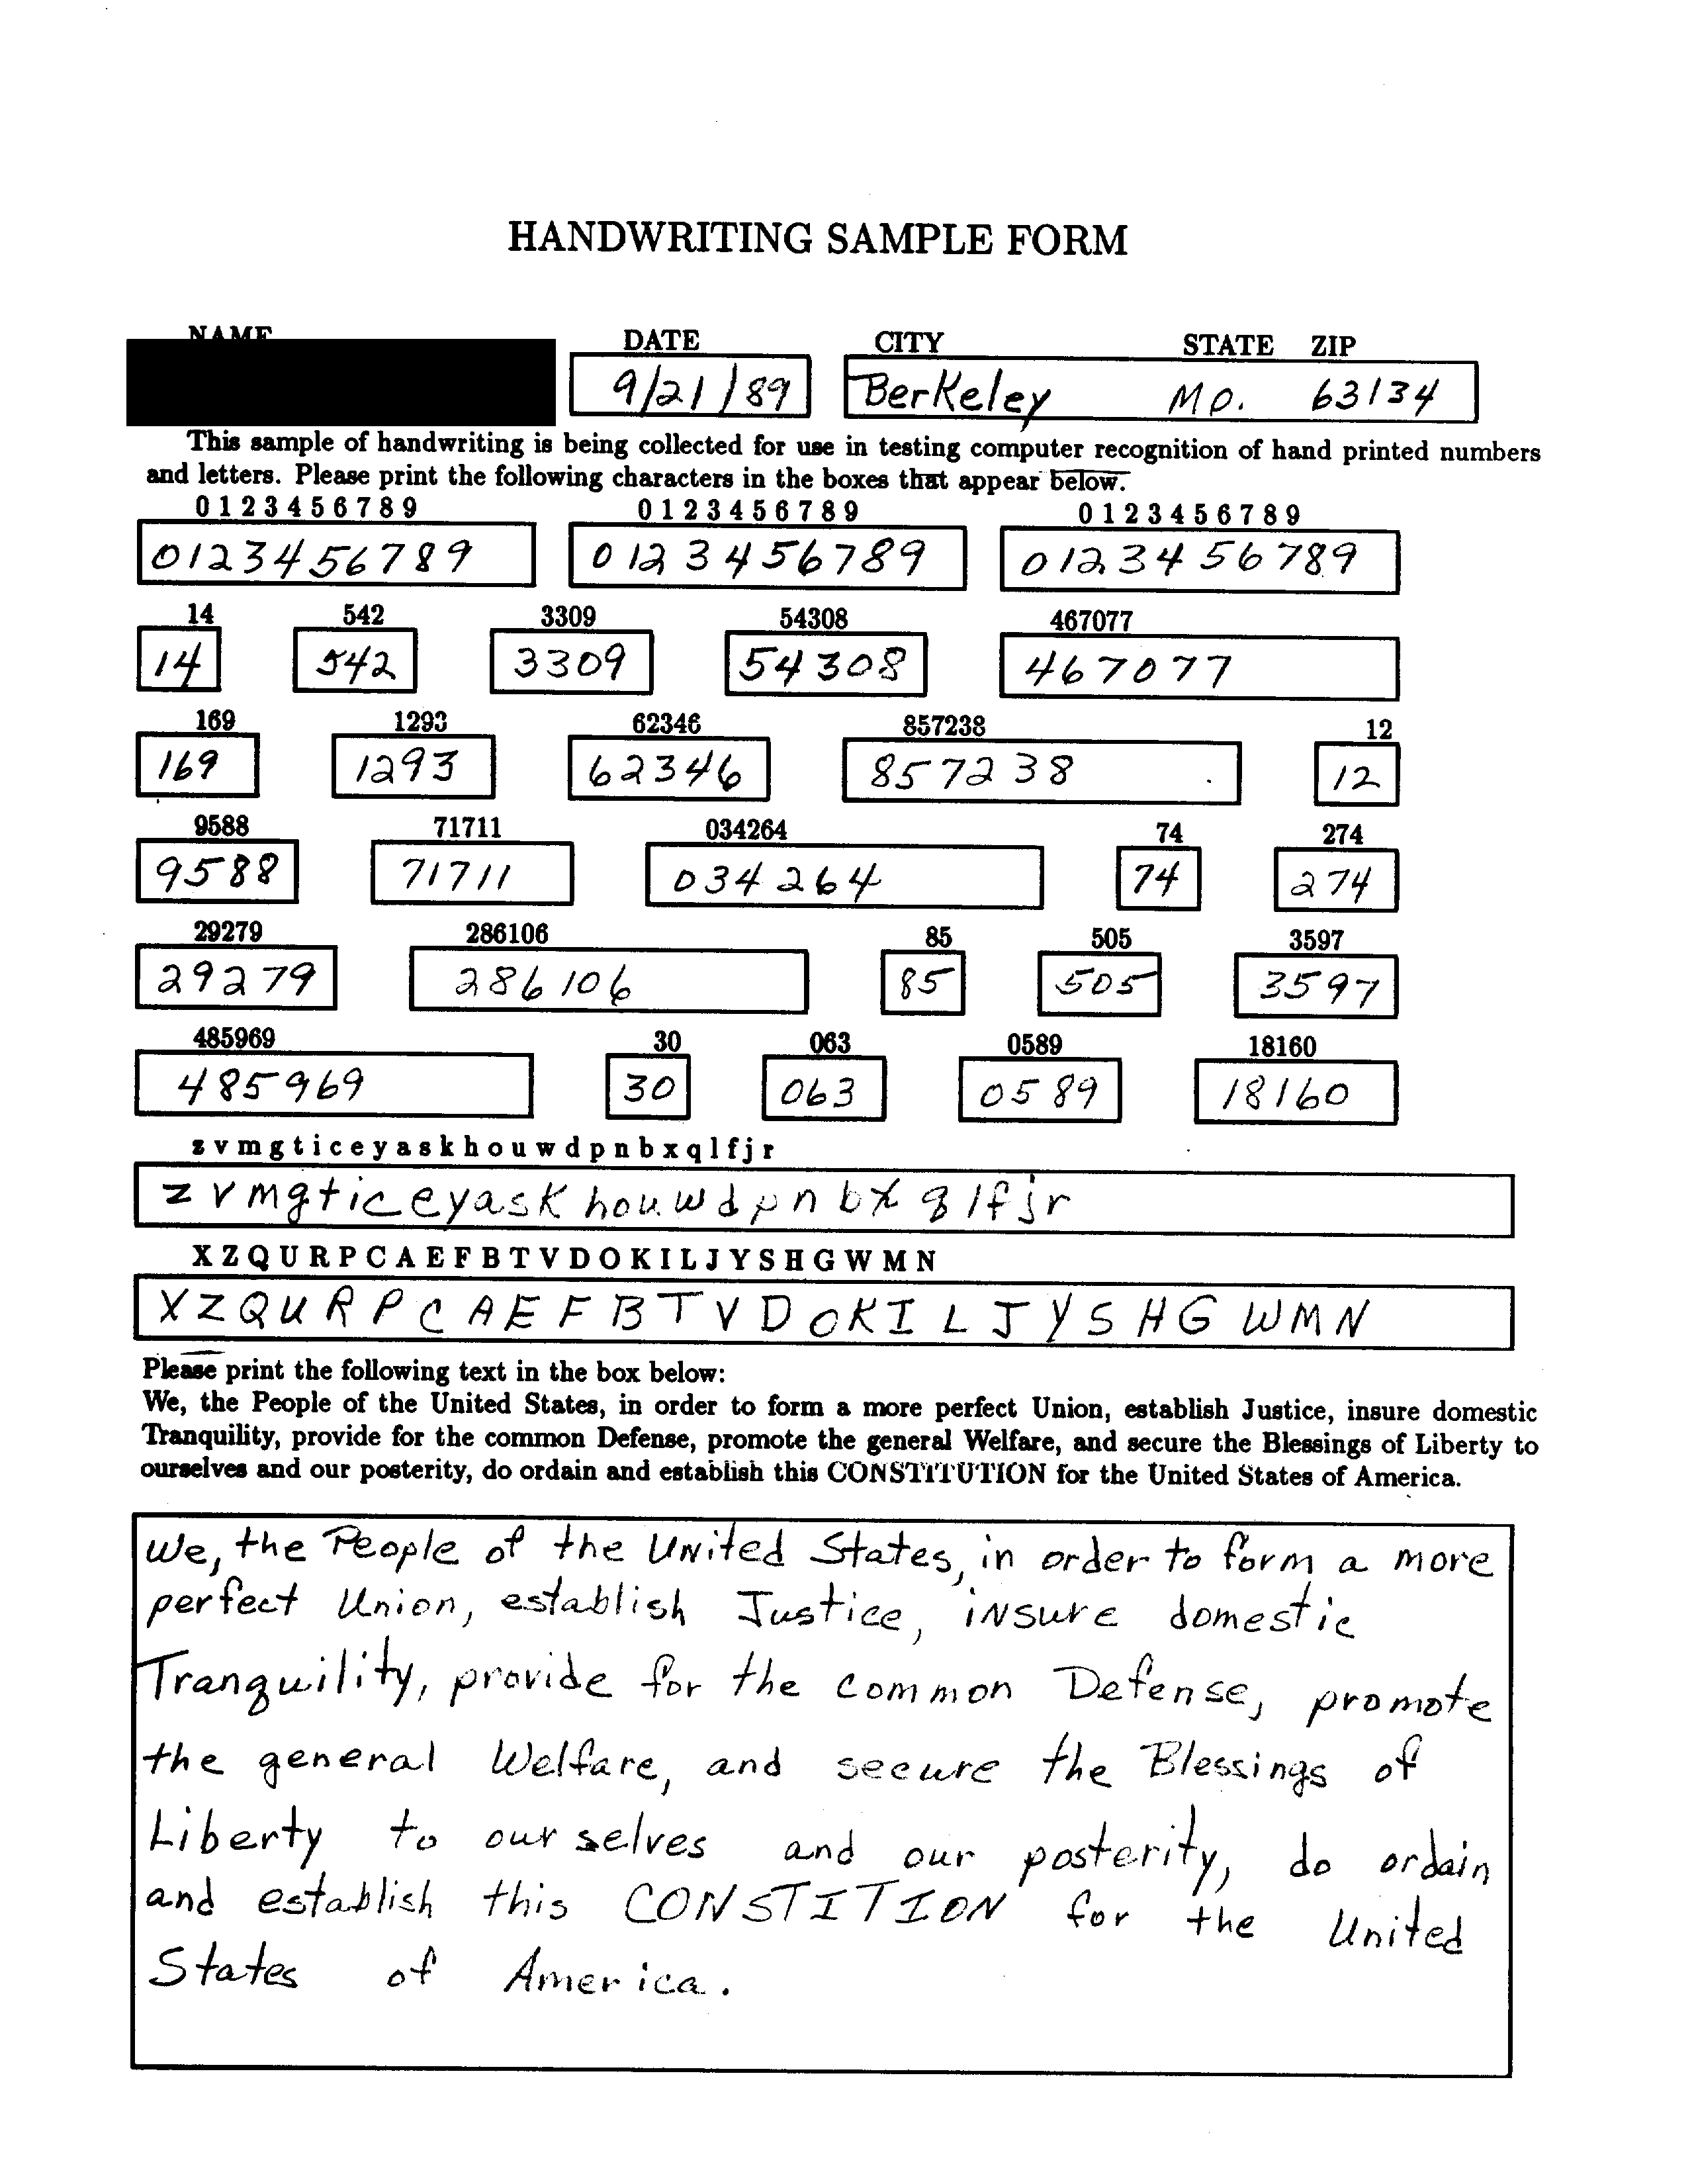 HANDWRITING SAMPLE FORM
NAME DATE CITY STATE ZIP
9/21/89 Berkeley MO. 63134
This sample of handwriting is being collected for use in testing computer recognition of hand printed numbers
and letters. Please print the following characters in the boxes that appear below.
0 1 2 3 4 5 6 7 8 9 0 1 2 3 4 5 6 7 8 9 0 1 2 3 4 5 6 7 8 9
0123456789 0123456789 0123456789
14 542 3309 54308 467077
14 542 3309 54308 467077
169 1293 62346 857238 12
169 1293 62346 857238 12
9588 71711 034264 74 274
9588 71711 034264 74 274
29279 286106 85 505 3597
29279 286106 85 505 3597
485969 30 063 0589 18160
485969 30 063 0589 18160
z v m g t i c e y a s k h o u w d p n b x q l f j r
z v m g t i c e y a s k h o u w d p n b x q l f j r
X Z Q U R P C A E F B T V D O K I L J Y S H G W M N
X Z Q U R P C A E F B T V D O K I L J Y S H G W M N
Please print the following text in the box below:
We, the People of the United States, in order to form a more perfect Union, establish Justice, insure domestic
Tranquility, provide for the common Defense, promote the general Welfare, and secure the Blessings of Liberty to
ourselves and our posterity, do ordain and establish this CONSTITUTION for the United States of America.
We, the People of the United States, in order to form a more
perfect Union, establish Justice, insure domestic
Tranquility, provide for the common Defense, promote
the general Welfare, and secure the Blessings of
Liberty to ourselves and our posterity, do ordain
and establish this CONSTITION for the United
States of America.